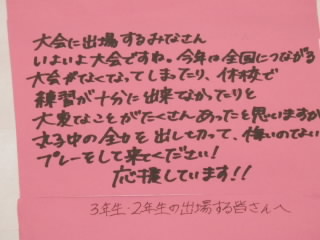 大会に出場するみなさん
いよいよ大会ですね。今年は全国につながる
大会がなくなってしまったり、休校で
練習が十分に出来てなかったりと
大変なことがたくさんあったと思いますが
中の全力を出し切って、悔いのない
プレーをして来てください!
応援しています!!
3年生・2年生の出場する皆さんへ